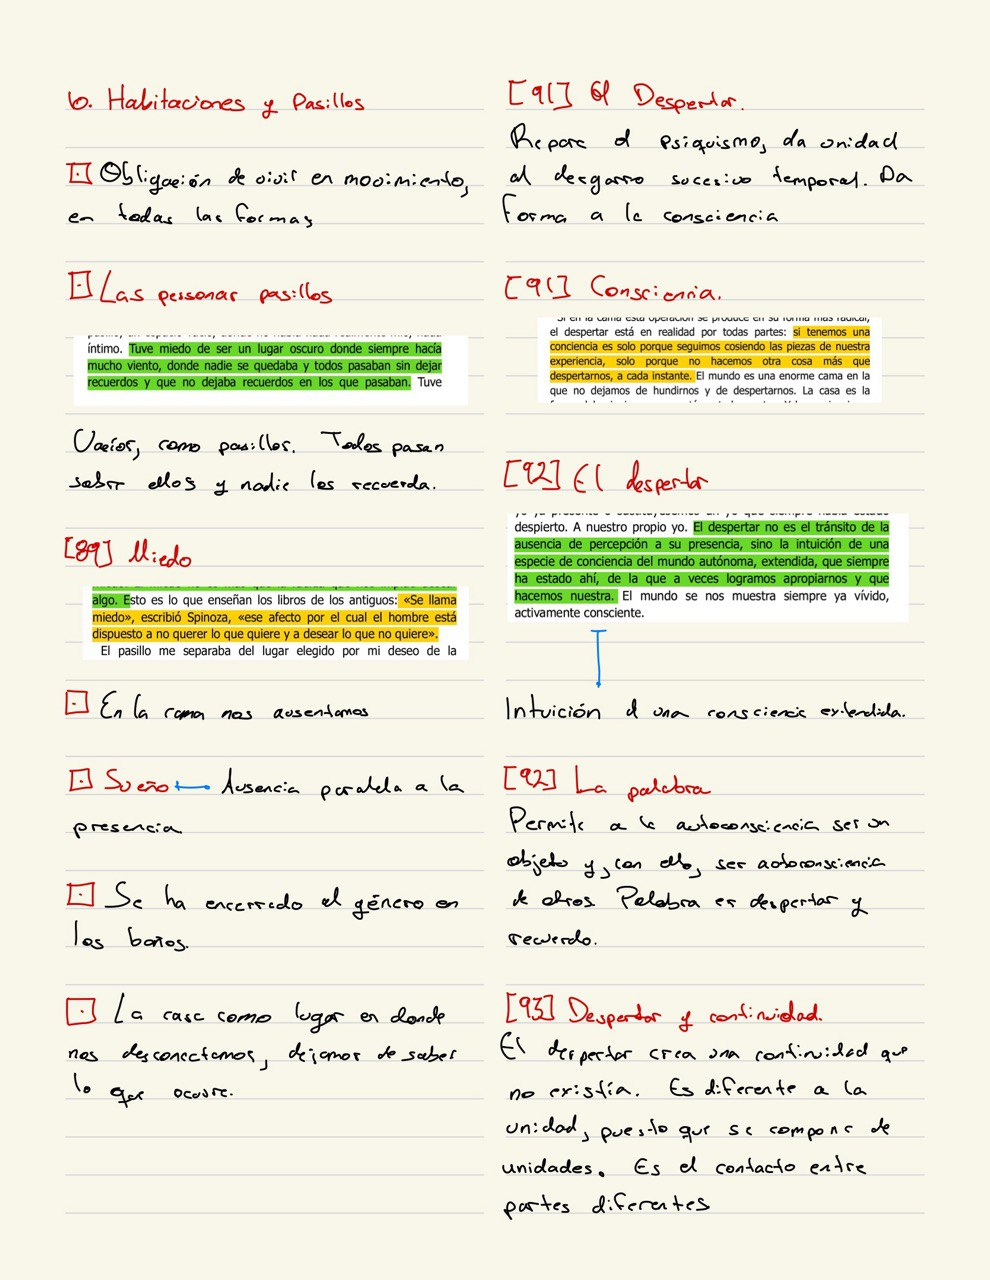 6. Habitaciones y Pasillos
Obligación de vivir en movimiento,
en todas las formas
Las personas pasillos
íntimo. Tuve miedo de ser un lugar oscuro donde siempre hacía
mucho viento, donde nadie se quedaba y todos pasaban sin dejar
recuerdos y que no dejaba recuerdos en los que pasaban. Tuve
Vacíos, como pasillos. Todos pasan
sobre ellos y nadie los recuerda.
[89] Miedo
algo. Esto es lo que enseñan los libros de los antiguos: «Se llama
miedo», escribió Spinoza, «ese afecto por el cual el hombre está
dispuesto a no querer lo que quiere y a desear lo que no quiere».
El pasillo me separaba del lugar elegido por mi deseo de la
En la cama nos ausentamos
Sueño Ausencia paralela a la
presencia
Se ha encerrado el género en
los baños.
La casa como lugar en donde
nos desconectamos, dejamos de saber
lo que ocurre.
[91] El Despertar.
Repara el psiquismo, da unidad
al desgarro sucesivo temporal. Da
forma a la consciencia
[91] Consciencia.
Si en la cama esta operación se produce en su forma más radical,
el despertar está en realidad por todas partes: si tenemos una
conciencia es solo porque seguimos cosiendo las piezas de nuestra
experiencia, solo porque no hacemos otra cosa más que
despertarnos, a cada instante. El mundo es una enorme cama en la
que no dejamos de hundirnos y de despertarnos. La casa es la
[92] El despertar
despierto. A nuestro propio yo. El despertar no es el tránsito de la
ausencia de percepción a su presencia, sino la intuición de una
especie de conciencia del mundo autónoma, extendida, que siempre
ha estado ahí, de la que a veces logramos apropiarnos y que
hacemos nuestra. El mundo se nos muestra siempre ya vívido,
activamente consciente.
Intuición d una consciencia extendida.
[92] La palabra
Permite a la autoconsciencia ser un
objeto y, con ello, ser autoconsciencia
de otros. Palabra es despertar y
recuerdo.
[93] Despertar y continuidad.
El despertar crea una continuidad que
no existía. Es diferente a la
unidad, puesto que se compone de
unidades. Es el contacto entre
partes diferentes